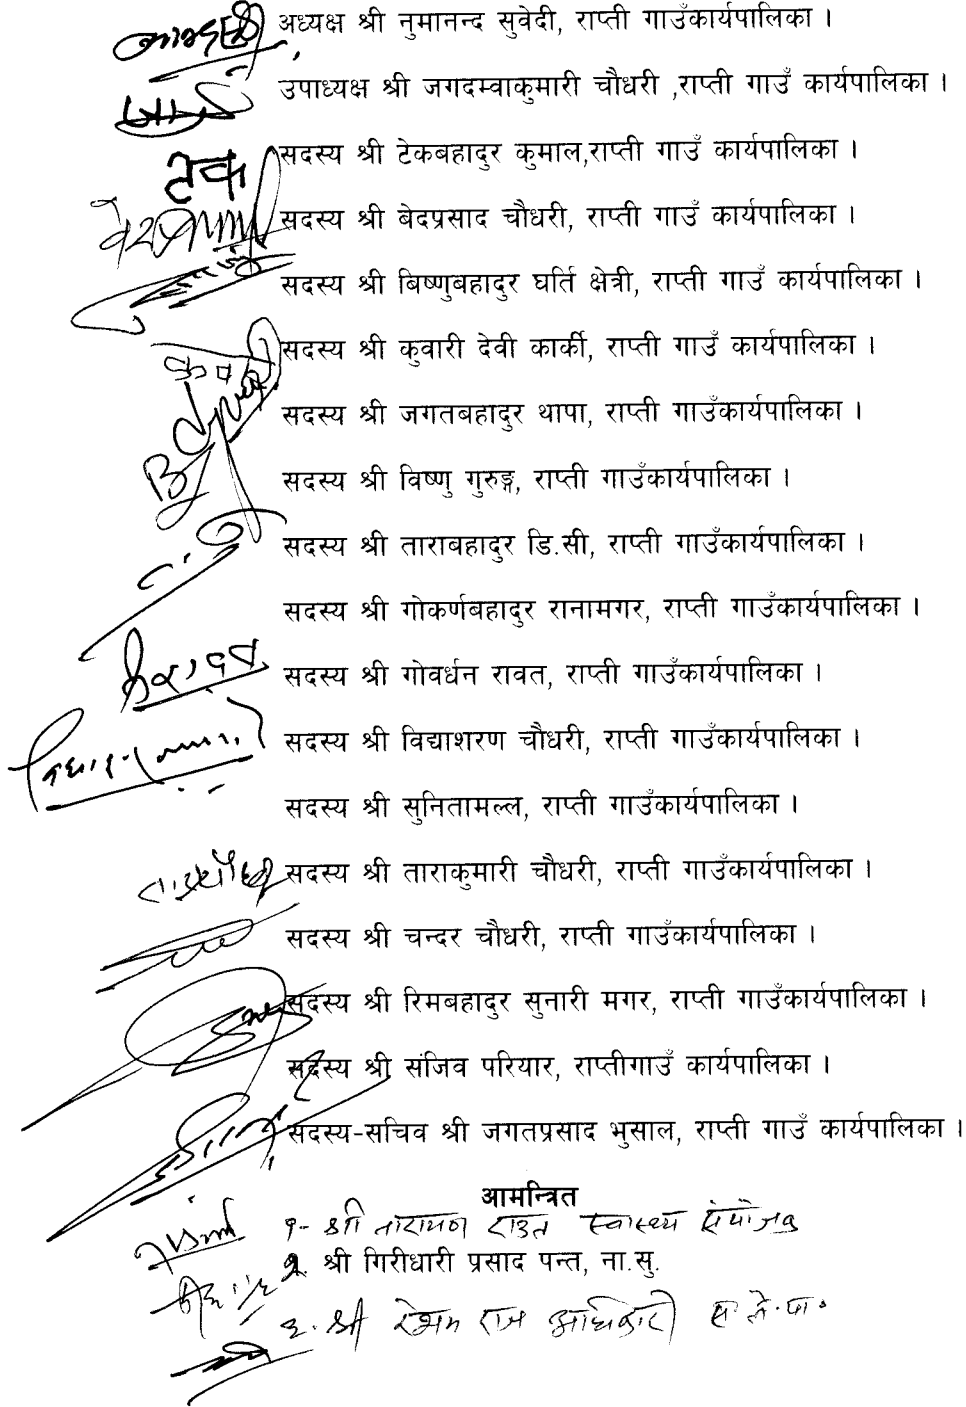 अध्यक्ष श्री नुमानन्द सुवेदी, राप्ती गाउँकार्यपालिका ।
उपाध्यक्ष श्री जगदम्वाकुमारी चौधरी ,राप्ती गाउँ कार्यपालिका ।
टेक
सदस्य श्री टेकबहादुर कुमाल,राप्ती गाउँ कार्यपालिका ।
सदस्य श्री बेदप्रसाद चौधरी, राप्ती गाउँ कार्यपालिका ।
सदस्य श्री बिष्णुबहादुर घर्ति क्षेत्री, राप्ती गाउँ कार्यपालिका ।
सदस्य श्री कुवारी देवी कार्की, राप्ती गाउँ कार्यपालिका ।
सदस्य श्री जगतबहादुर थापा, राप्ती गाउँकार्यपालिका ।
सदस्य श्री विष्णु गुरुङ्ग, राप्ती गाउँकार्यपालिका ।
सदस्य श्री ताराबहादुर डि.सी, राप्ती गाउँकार्यपालिका ।
सदस्य श्री गोकर्णबहादुर रानामगर, राप्ती गाउँकार्यपालिका ।
सदस्य श्री गोवर्धन रावत, राप्ती गाउँकार्यपालिका ।
सदस्य श्री विद्याशरण चौधरी, राप्ती गाउँकार्यपालिका ।
सदस्य श्री सुनितामल्ल, राप्ती गाउँकार्यपालिका ।
सदस्य श्री ताराकुमारी चौधरी, राप्ती गाउँकार्यपालिका ।
सदस्य श्री चन्दर चौधरी, राप्ती गाउँकार्यपालिका ।
सदस्य श्री रिमबहादुर सुनारी मगर, राप्ती गाउँकार्यपालिका ।
सदस्य श्री संजिव परियार, राप्तीगाउँ कार्यपालिका ।
सदस्य-सचिव श्री जगतप्रसाद भुसाल, राप्ती गाउँ कार्यपालिका ।
आमन्त्रित
१- श्री नारायण राउत स्वास्थ्य संयोजक
२. श्री गिरीधारी प्रसाद पन्त, ना.सु.
३. श्री रेशम राज अधिकारी स.ले.पा.